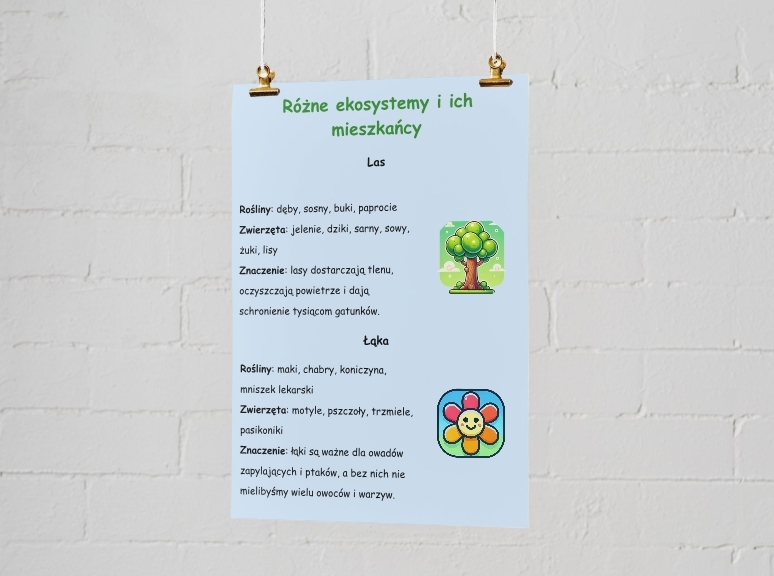 Różne ekosystemy i ich
mieszkańcy
Las
Rośliny: dęby, sosny, buki, paprocie
Zwierzęta: jelenie, dziki, sarny, sowy,
żuki, lisy
Znaczenie: lasy dostarczają tlenu,
oczyszczają powietrze i dają
schronienie tysiącom gatunków.
Łąka
Rośliny: maki, chabry, koniczyna,
mniszek lekarski
Zwierzęta: motyle, pszczoły, trzmiele,
pasikoniki
Znaczenie: łąki są ważne dla owadów
zapylających i ptaków, a bez nich nie
mielibyśmy wielu owoców i warzyw.